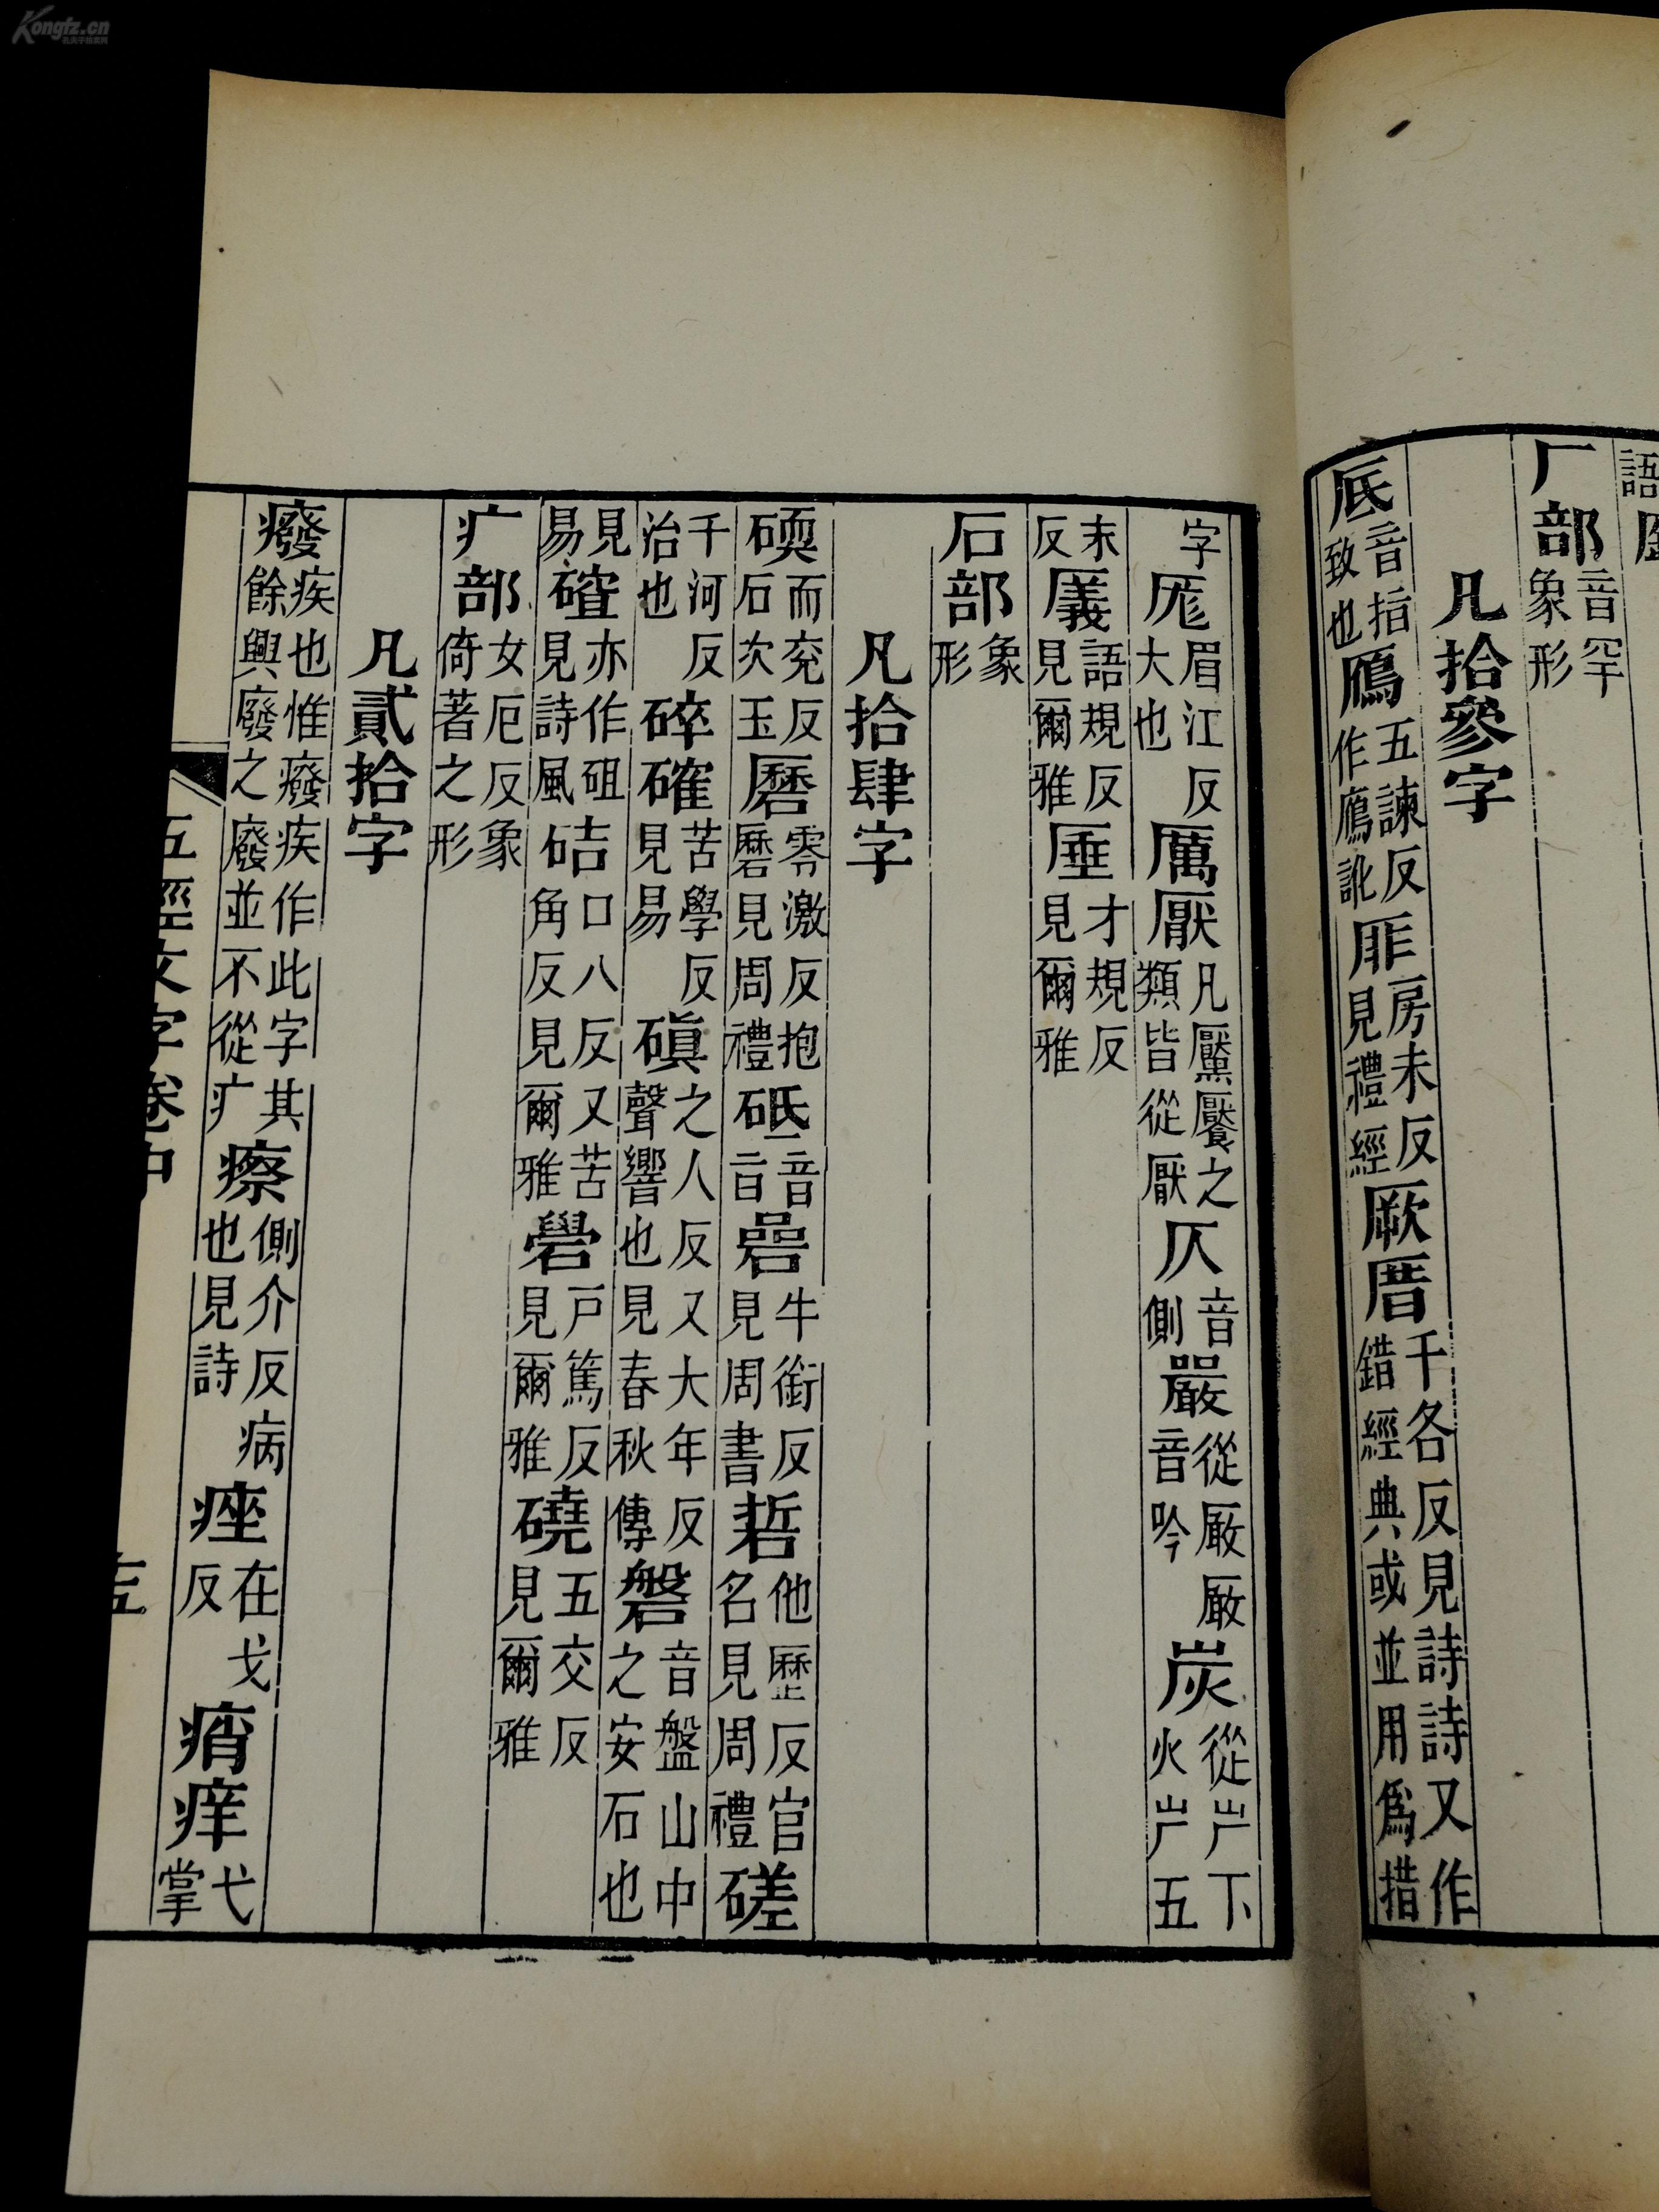 Kongfz.cn
语厬
厂部音罕象形
凡拾參字
厎音指致也鴈五諫反作鷹訛厞房未反見禮經厥厝千各反見詩詩又作錯經典或並用爲措
字厖眉江反大也厲厭凡黶饜之類皆從厭仄音側嚴從厰厰音吟炭從屵下火屵五
末反厜語規反見爾雅厜才規反見爾雅
石部象形
凡拾肆字
碝而兗反石次玉磿零激反抱磿見周禮砥音旨碞牛銜反見周書硩他歷反官名見周禮磋
千河反治也碎確苦學反見易磌之人反又大年反聲響也見春秋傳磐音盤山中之安石也
見易砠亦作砠見詩風硈口八反又苦角反見爾雅礐戸篤反見爾雅磽五交反見爾雅
疒部女厄反象倚著之形
凡貳拾字
癈疾也惟癈疾作此字其餘興廢之廢並不從疒瘵側介反病也見詩痤在戈反痟痒弋掌
五經文字卷中
十五